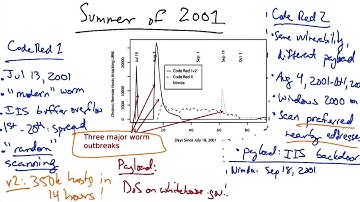 Summer of 2001
Code Red 1
Jul 13, 2001
"modern" worm
IIS buffer overflow
1st-20th: spread
"random"
scanning
v2: 350k hosts in
14 hours!
Jul 19
Aug 1
Sep 1
Sep 19
Oct 1
Code Red 1v2
Code Red II
Nimda
0
20
40
60
80
Days Since July 18, 2001
Three major worm
outbreaks
Payload:
DoS on whitehouse.gov!
Code Red 2
Same vulnerability,
different payload
Aug 4, 2001-Oct, 2001
Windows 2000 on
Scan preferred
nearby addresses
payload: IIS backdoor
Nimda: Sep 18, 2001